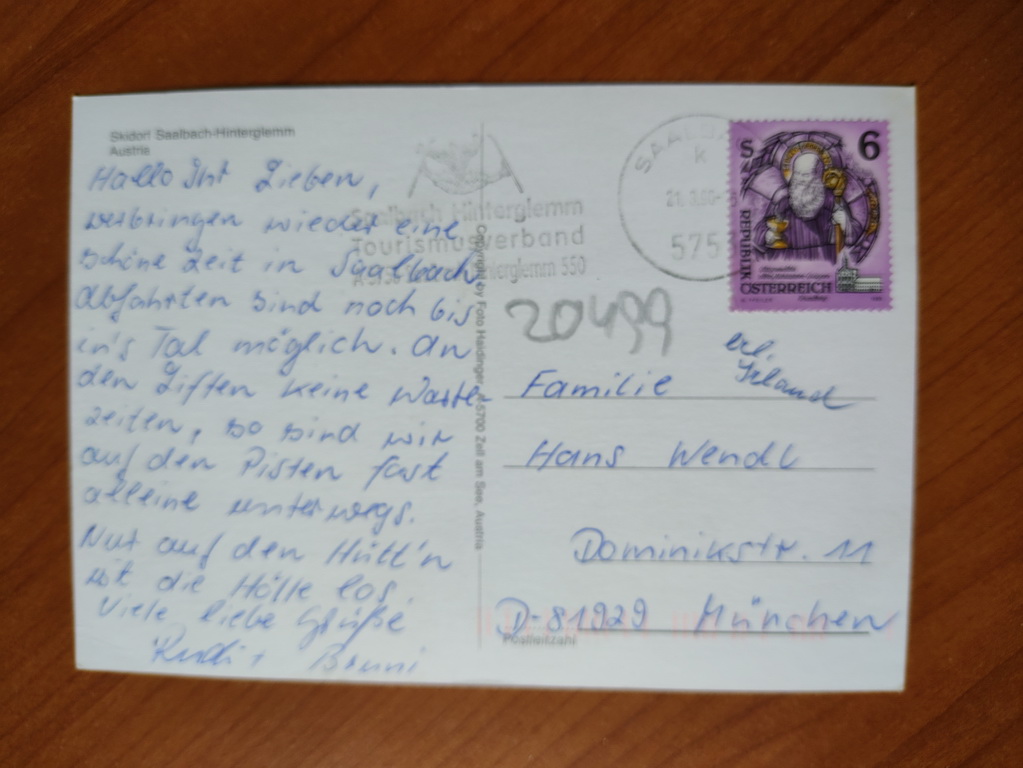 Skidorf Saalbach-Hinterglemm
Austria
Hallo Ihr Lieben,
verbringen wieder eine
schöne Zeit in Saalbach
Abfahrten sind noch bis
in's Tal möglich. An
den Liften keine Warte-
zeiten, so sind wir
auf den Pisten fast
alleine unterwegs.
Nur auf den Hütt'n
ist die Hölle los.
Viele liebe Grüße
Rudi + Bruni
Saalbach Hinterglemm
Tourismusverband
Hinterglemm 550
Copyright by Foto Haidinger A-5700 Zell am See, Austria
SAALBA
k
575
S 6
REPUBLIK
ÖSTERREICH
20499
erl.
Irland
Familie
Hans Wendl
Dominikstr. 11
D-81929 München
Postleitzahl